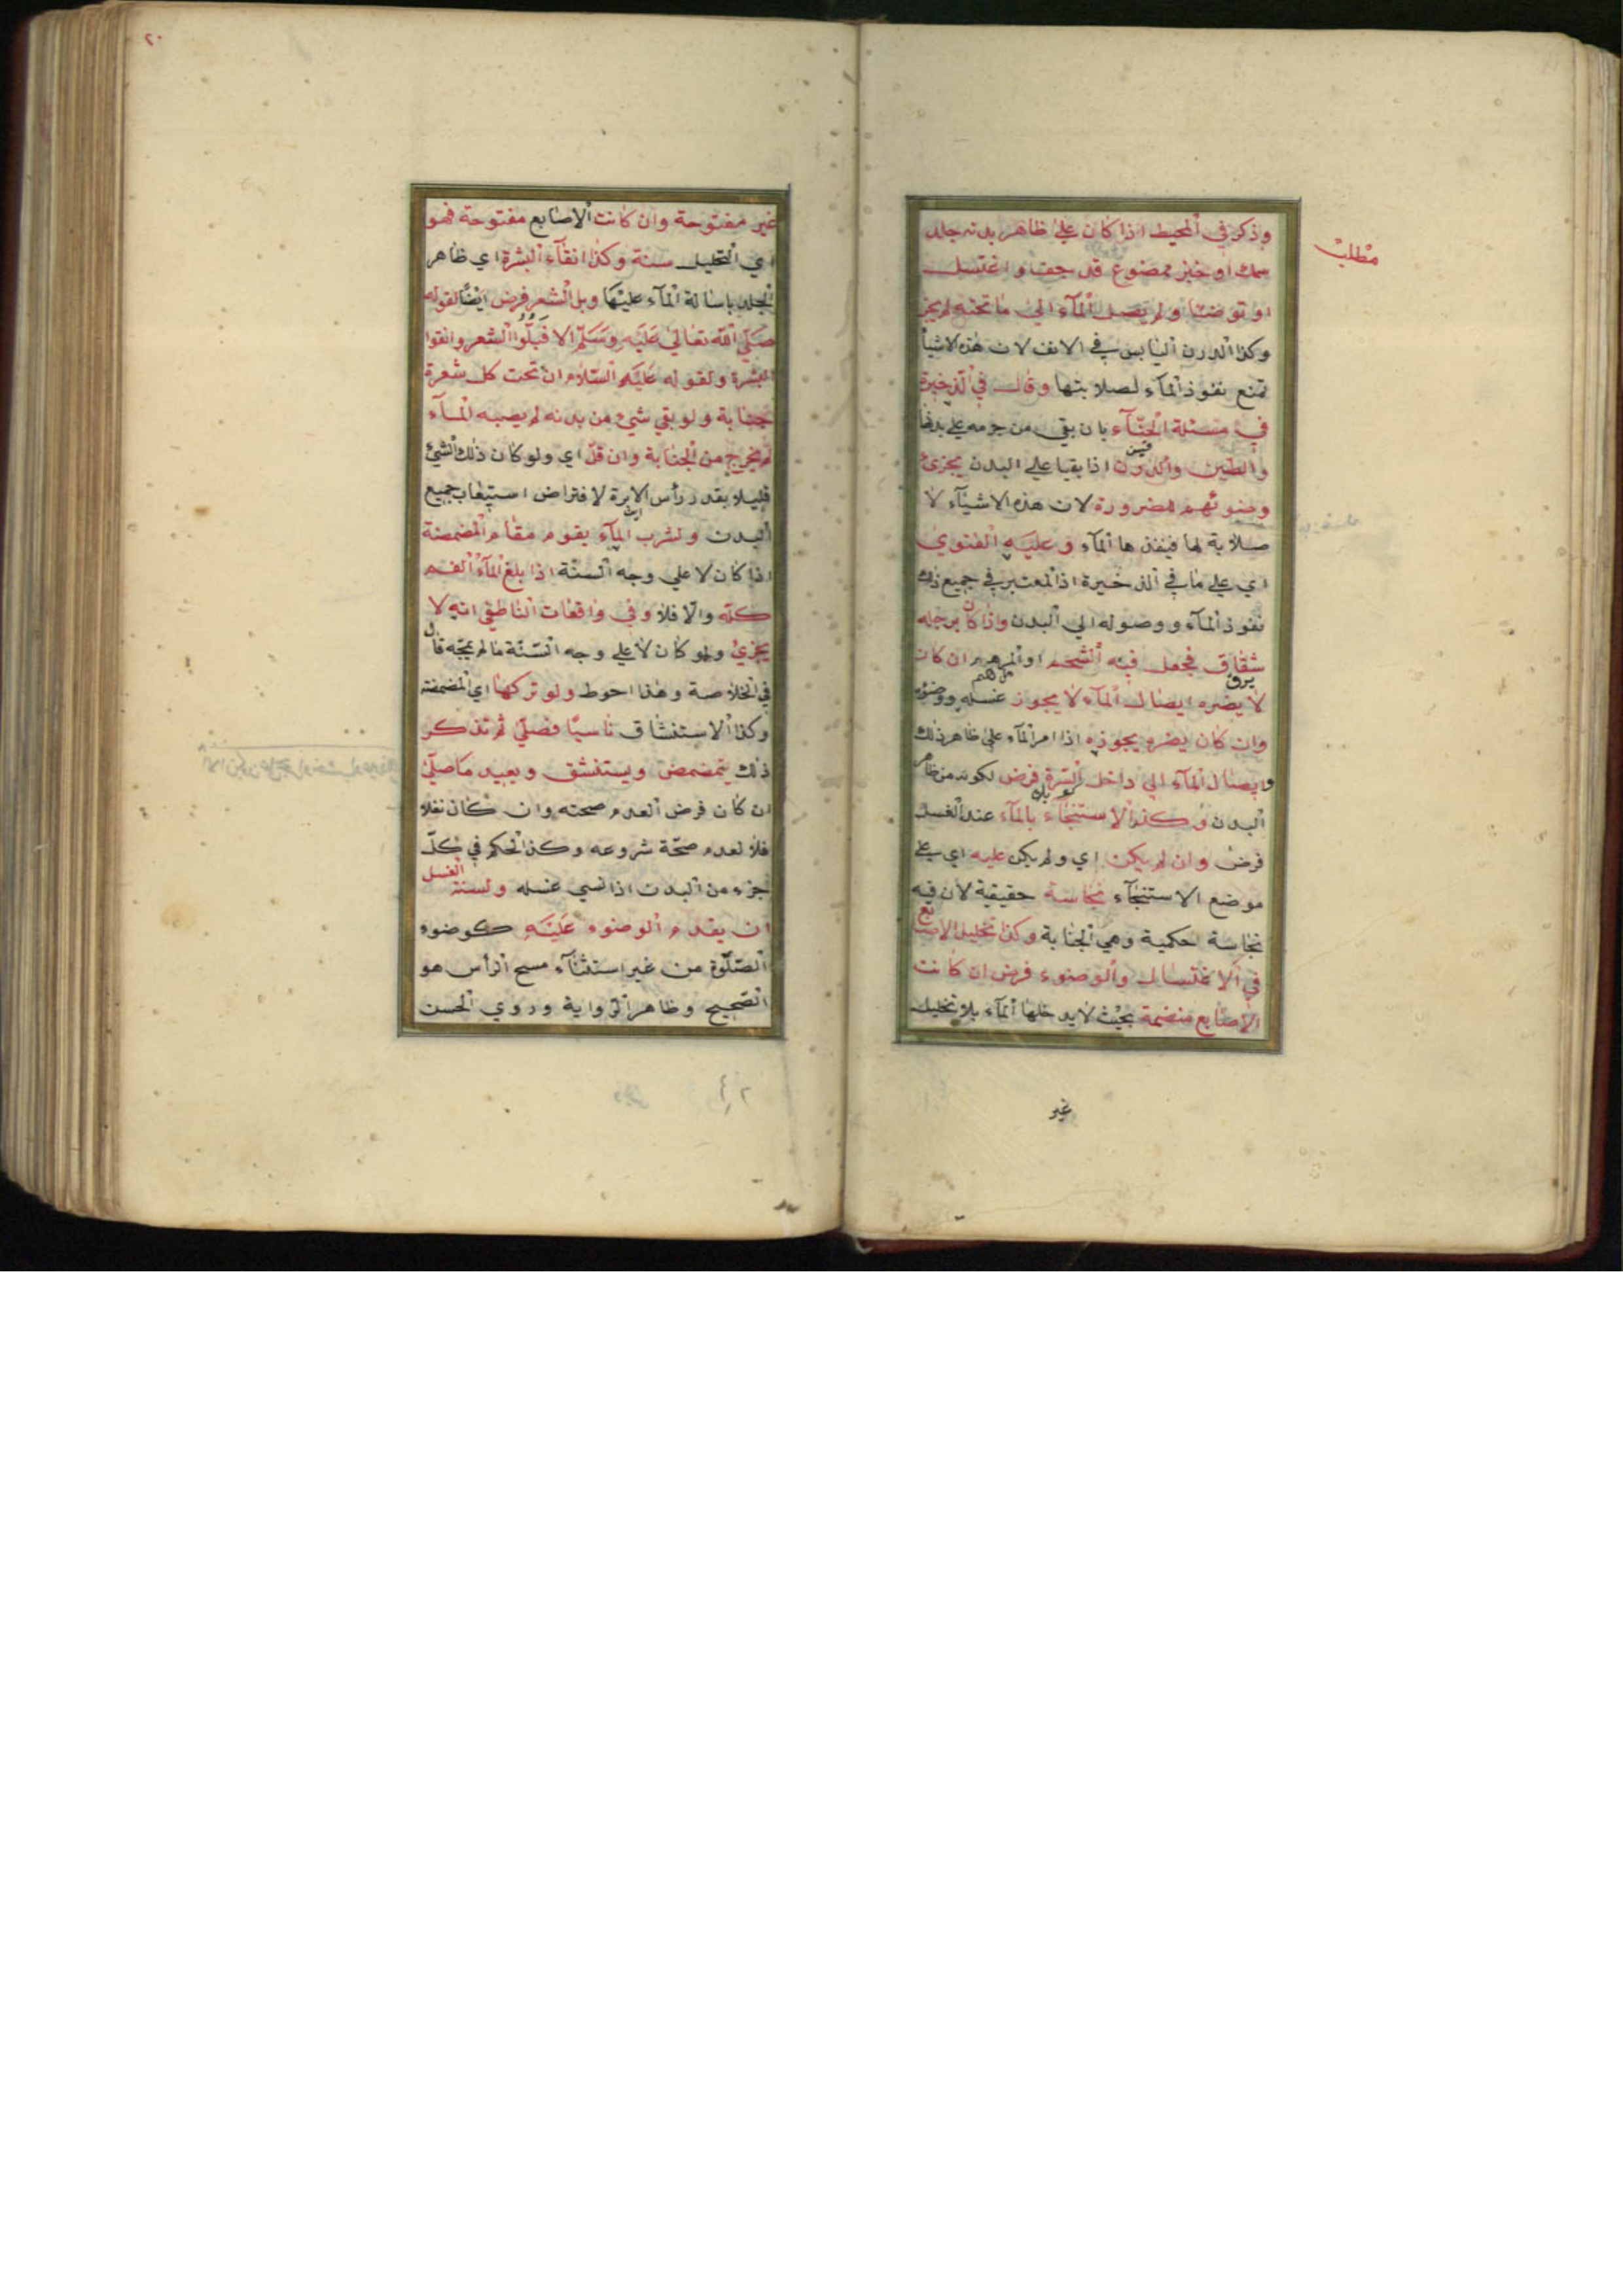 مطلب
وذكر في المحيط اذا كان على ظاهر بدنه جلد
سمك او خبز ممضوغ قد جف واغتسل
او توضئا ولم يصل المآء الى ما تحته لم يجز
وكذا الدرن اليابس في الانف لان هذه الاشيآ
تمنع نفوذ المآء لصلابتها وقال في الذخيرة
في مسئلة الحنآء بان بقي من جرمه على بدنها
والطين والدرن اذا بقيا على البدن يجزئ
وضوئهم للضرورة لان هذه الاشيآء لا
صلابة لها فينفذها المآء وعليه الفتوى
اي على ما في الذخيرة اذ المعتبر في جميع ذلك
نفوذ المآء ووصوله الى البدن واذا كان برجله
شقاق فجعل فيه الشحم او المرهم ان كان
لا يضره ايصال المآء لا يجوز غسله ووضوئه
وان كان يضره يجوز به اذا امر المآء على ظاهر ذلك
وايصال المآء الى داخل السرة فرض لكونه من ظاهر
البدن وكذا الاستنجآء بالمآء عند الغسل
فرض وان لم يكن اي ولم يكن عليه اي على
موضع الاستنجآء نجاسة حقيقية لان فيه
نجاسة حكمية وهي الجنابة وكذا تخليل الاصابع
في الاغتسال والوضوء فرض ان كانت
الاصابع منضمة بحيث لا يدخلها المآء بلا تخليل
غير
٢٠
غير مفتوحة وان كانت الاصابع مفتوحة فهو
اي التخليل سنة وكذا انقآء البشرة اي ظاهر
الجلد باسالة المآء عليها وبل الشعر فرض ايضا لقوله
صلى الله تعالى عليه وسلم الا فبلوا الشعر وانقوا
البشرة ولقوله عليه السلام ان تحت كل شعرة
جنابة ولو بقي شيء من بدنه لم يصبه المآء
لم يخرج من الجنابة وان قل اي ولو كان ذلك الشئ
قليلا بقدر رأس الابرة لافتراض استيعاب جميع
البدن ولشرب المآء يقوم مقام المضمضة
اذا كان لا على وجه السنة اذا بلغ المآء الفم
كله والا فلا وفي واقعات الناطفي انه لا
يجزئ ولو كان لا على وجه السنة ما لم يمجه قال
في الخلاصة وهذا احوط ولو تركها اي المضمضة
وكذا الاستنشاق ناسيا فصلى ثم تذكر
ذلك يتمضمض ويستنشق ويعيد ما صلى
ان كان فرض العدم صحته وان كان نفلا
فلا لعدم صحة شروعه وكذا الحكم في كل
جزء من البدن اذا نسي غسله ولسنة الغسل
ان يقدم الوضوء عليه كوضوء
الصلوة من غير استثنآء مسح الرأس هو
الصحيح وظاهر الرواية وروي الحسن